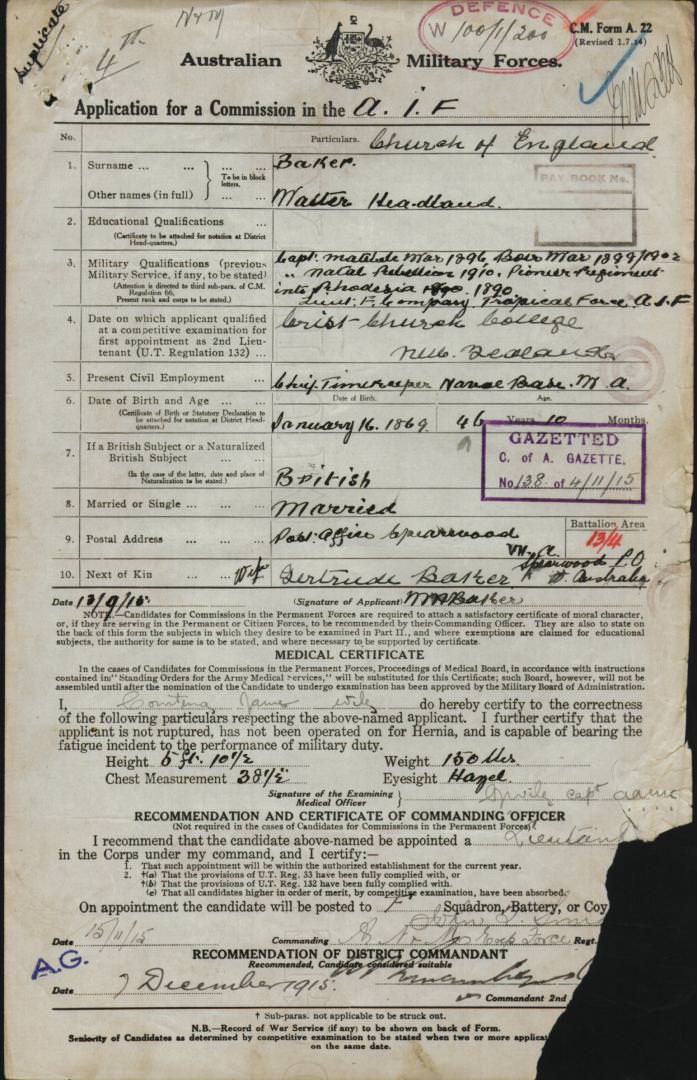 Duplicate
4th
N & M
DEFENCE
W 100/1/200
C.M. Form A. 22
(Revised 1.7.14)
Australian Military Forces.
Application for a Commission in the A. I. F
No. Particulars. Church of England.
1. Surname ... ... ... ... Baker.
To be in block letters.
Other names (in full) ... ... Walter Headland.
PAY BOOK No.
2. Educational Qualifications ... ...
(Certificate to be attached for notation at District Head-quarters.)
3. Military Qualifications (previous Military Service, if any, to be stated)
(Attention is directed to third sub-para. of C.M. Regulation 66. Present rank and corps to be stated.)
Capt. Matabele War 1896, Boer War 1899/1902
" Natal Rebellion 1910. Pioneer Regiment
into Rhodesia 1890. 1890.
Lieut. F. Company, Tropical Force, A I F
4. Date on which applicant qualified at a competitive examination for first appointment as 2nd Lieutenant (U.T. Regulation 132) ...
Crist Church College
New Zealand
5. Present Civil Employment ... Chif Timekeeper Naval Base. W A.
6. Date of Birth and Age ... ... Date of Birth. Age.
(Certificate of Birth or Statutory Declaration to be attached for notation at District Head-quarters.)
January 16. 1869. 46 Years 10 Months.
7. If a British Subject or a Naturalized British Subject ... ...
(In the case of the latter, date and place of Naturalization to be stated.)
British
GAZETTED
C. of A. GAZETTE.
No 138 of 4/11/15
8. Married or Single ... ... ... Married
9. Postal Address ... ... ... Post Office Spearwood
W. A.
Battalion Area
13/4
10. Next of Kin ... ... ... Wife Gertrude Baker Spearwood P.O.
W. Australia
Date 13/9/15 (Signature of Applicant) W H Baker
NOTE.—Candidates for Commissions in the Permanent Forces are required to attach a satisfactory certificate of moral character,
or, if they are serving in the Permanent or Citizen Forces, to be recommended by their Commanding Officer. They are also to state on
the back of this form the subjects in which they desire to be examined in Part II., and where exemptions are claimed for educational
subjects, the authority for same is to be stated, and where necessary to be supported by certificate.
MEDICAL CERTIFICATE
In the cases of Candidates for Commissions in the Permanent Forces, Proceedings of Medical Board, in accordance with instructions
contained in "Standing Orders for the Army Medical Services," will be substituted for this Certificate; such Board, however, will not be
assembled until after the nomination of the Candidate to undergo examination has been approved by the Military Board of Administration.
I, James do hereby certify to the correctness
of the following particulars respecting the above-named applicant. I further certify that the
applicant is not ruptured, has not been operated on for Hernia, and is capable of bearing the
fatigue incident to the performance of military duty.
Height 5 ft. 10 1/2 Weight 150 lbs.
Chest Measurement 38 1/2 Eyesight Hazel.
Signature of the Examining Medical Officer capt aamc
RECOMMENDATION AND CERTIFICATE OF COMMANDING OFFICER
(Not required in the cases of Candidates for Commissions in the Permanent Forces).
I recommend that the candidate above-named be appointed a Lieutenant
in the Corps under my command, and I certify:—
1. That such appointment will be within the authorized establishment for the current year.
2. †(a) That the provisions of U.T. Reg. 33 have been fully complied with, or
†(b) That the provisions of U.T. Reg. 132 have been fully complied with.
(c) That all candidates higher in order of merit, by competitive examination, have been absorbed.
On appointment the candidate will be posted to F Squadron, Battery, or Coy
Date 15/11/15 Commanding Force Regt.
A.G.
RECOMMENDATION OF DISTRICT COMMANDANT
Recommended, Candidate considered suitable
Date 7 December 1915. Commandant 2nd
† Sub-paras. not applicable to be struck out.
N.B.—Record of War Service (if any) to be shown on back of Form.
Seniority of Candidates as determined by competitive examination to be stated when two or more applic
on the same date.